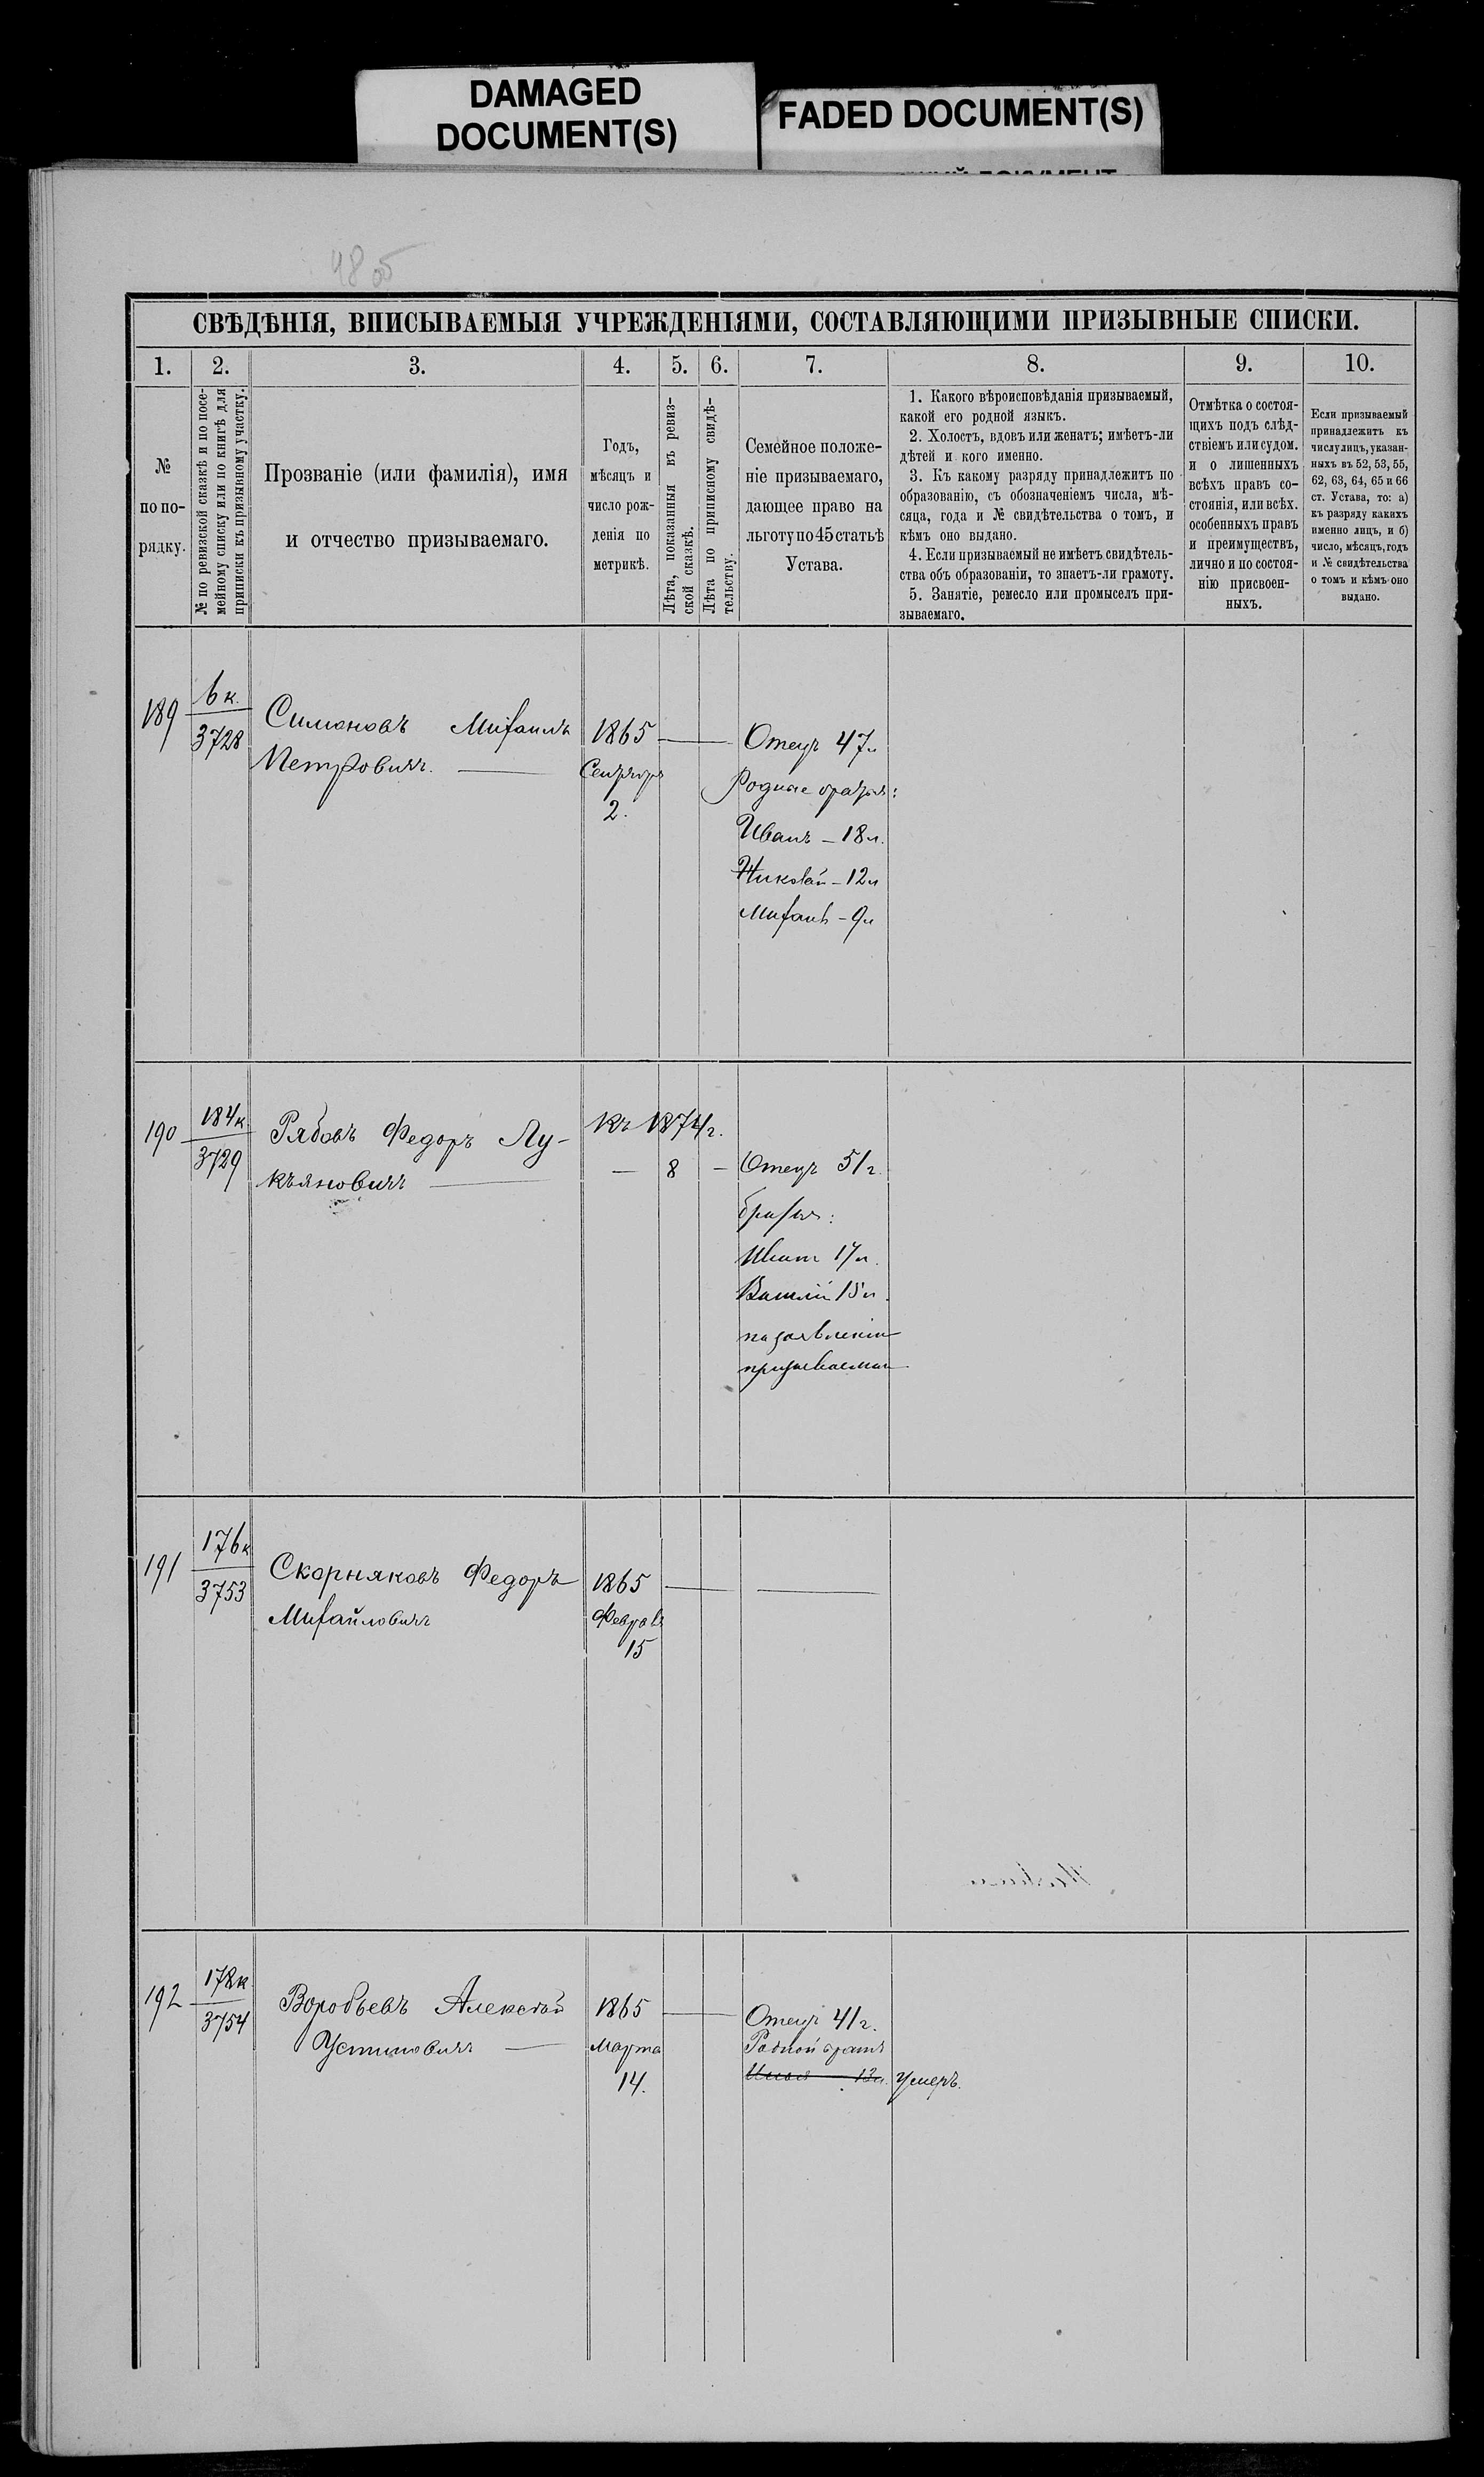 DAMAGED
DOCUMENT(S)
FADED DOCUMENT(S)
48 об
СВѢДѢНІЯ, ВПИСЫВАЕМЫЯ УЧРЕЖДЕНІЯМИ, СОСТАВЛЯЮЩИМИ ПРИЗЫВНЫЕ СПИСКИ.
1. 2. 3. 4. 5. 6. 7. 8. 9. 10.
№
по по-
рядку.
№ по ревизской сказкѣ и по посе-
мейному списку или по книгѣ для
приписки къ призывному участку.
Прозваніе (или фамилія), имя
и отчество призываемаго.
Годъ,
мѣсяцъ и
число рож-
денія по
метрикѣ.
Лѣта, показанныя въ ревиз-
ской сказкѣ.
Лѣта по приписному свидѣ-
тельству.
Семейное положе-
ніе призываемаго,
дающее право на
льготу по 45 статьѣ
Устава.
1. Какого вѣроисповѣданія призываемый,
какой его родной языкъ.
2. Холостъ, вдовъ или женатъ; имѣетъ-ли
дѣтей и кого именно.
3. Къ какому разряду принадлежитъ по
образованію, съ обозначеніемъ числа, мѣ-
сяца, года и № свидѣтельства о томъ, и
кѣмъ оно выдано.
4. Если призываемый не имѣетъ свидѣтель-
ства объ образованіи, то знаетъ-ли грамоту.
5. Занятіе, ремесло или промыселъ при-
зываемаго.
Отмѣтка о состоя-
щихъ подъ слѣд-
ствіемъ или судом.
и о лишенныхъ
всѣхъ правъ со-
стоянія, или всѣх.
особенныхъ правъ
и преимуществъ,
лично и по состоя-
нію присвоен-
ныхъ.
Если призываемый
принадлежитъ къ
числу лицъ, указан-
ныхъ въ 52, 53, 55,
62, 63, 64, 65 и 66
ст. Устава, то: а)
къ разряду какихъ
именно лицъ, и б)
число, мѣсяцъ, годъ
и № свидѣтельства
о томъ и кѣмъ оно
выдано.
189
6 к.
3728
Симоновъ Михаилъ
Петровичъ.
1865
Сентября
2.
Отецъ 47 л
Родные братья:
Иванъ – 18 л.
Николай – 12 л
Михаилъ – 9 л
190
184 к
3729
Рябовъ Федоръ Лу-
кьяновичъ
Къ 1874 г.
— 8 —
Отецъ 51 г.
братья:
Иванъ 17 л.
Василій 15 л.
по заявленію
призываемаго
191
176 к
3753
Скорняковъ Федоръ
Михайловичъ
1865
Февраля
15
192
178 к
3754
Воробьевъ Алексѣй
Устиновичъ
1865
Марта
14.
Отецъ 41 г.
Родной братъ
13 л. умеръ.